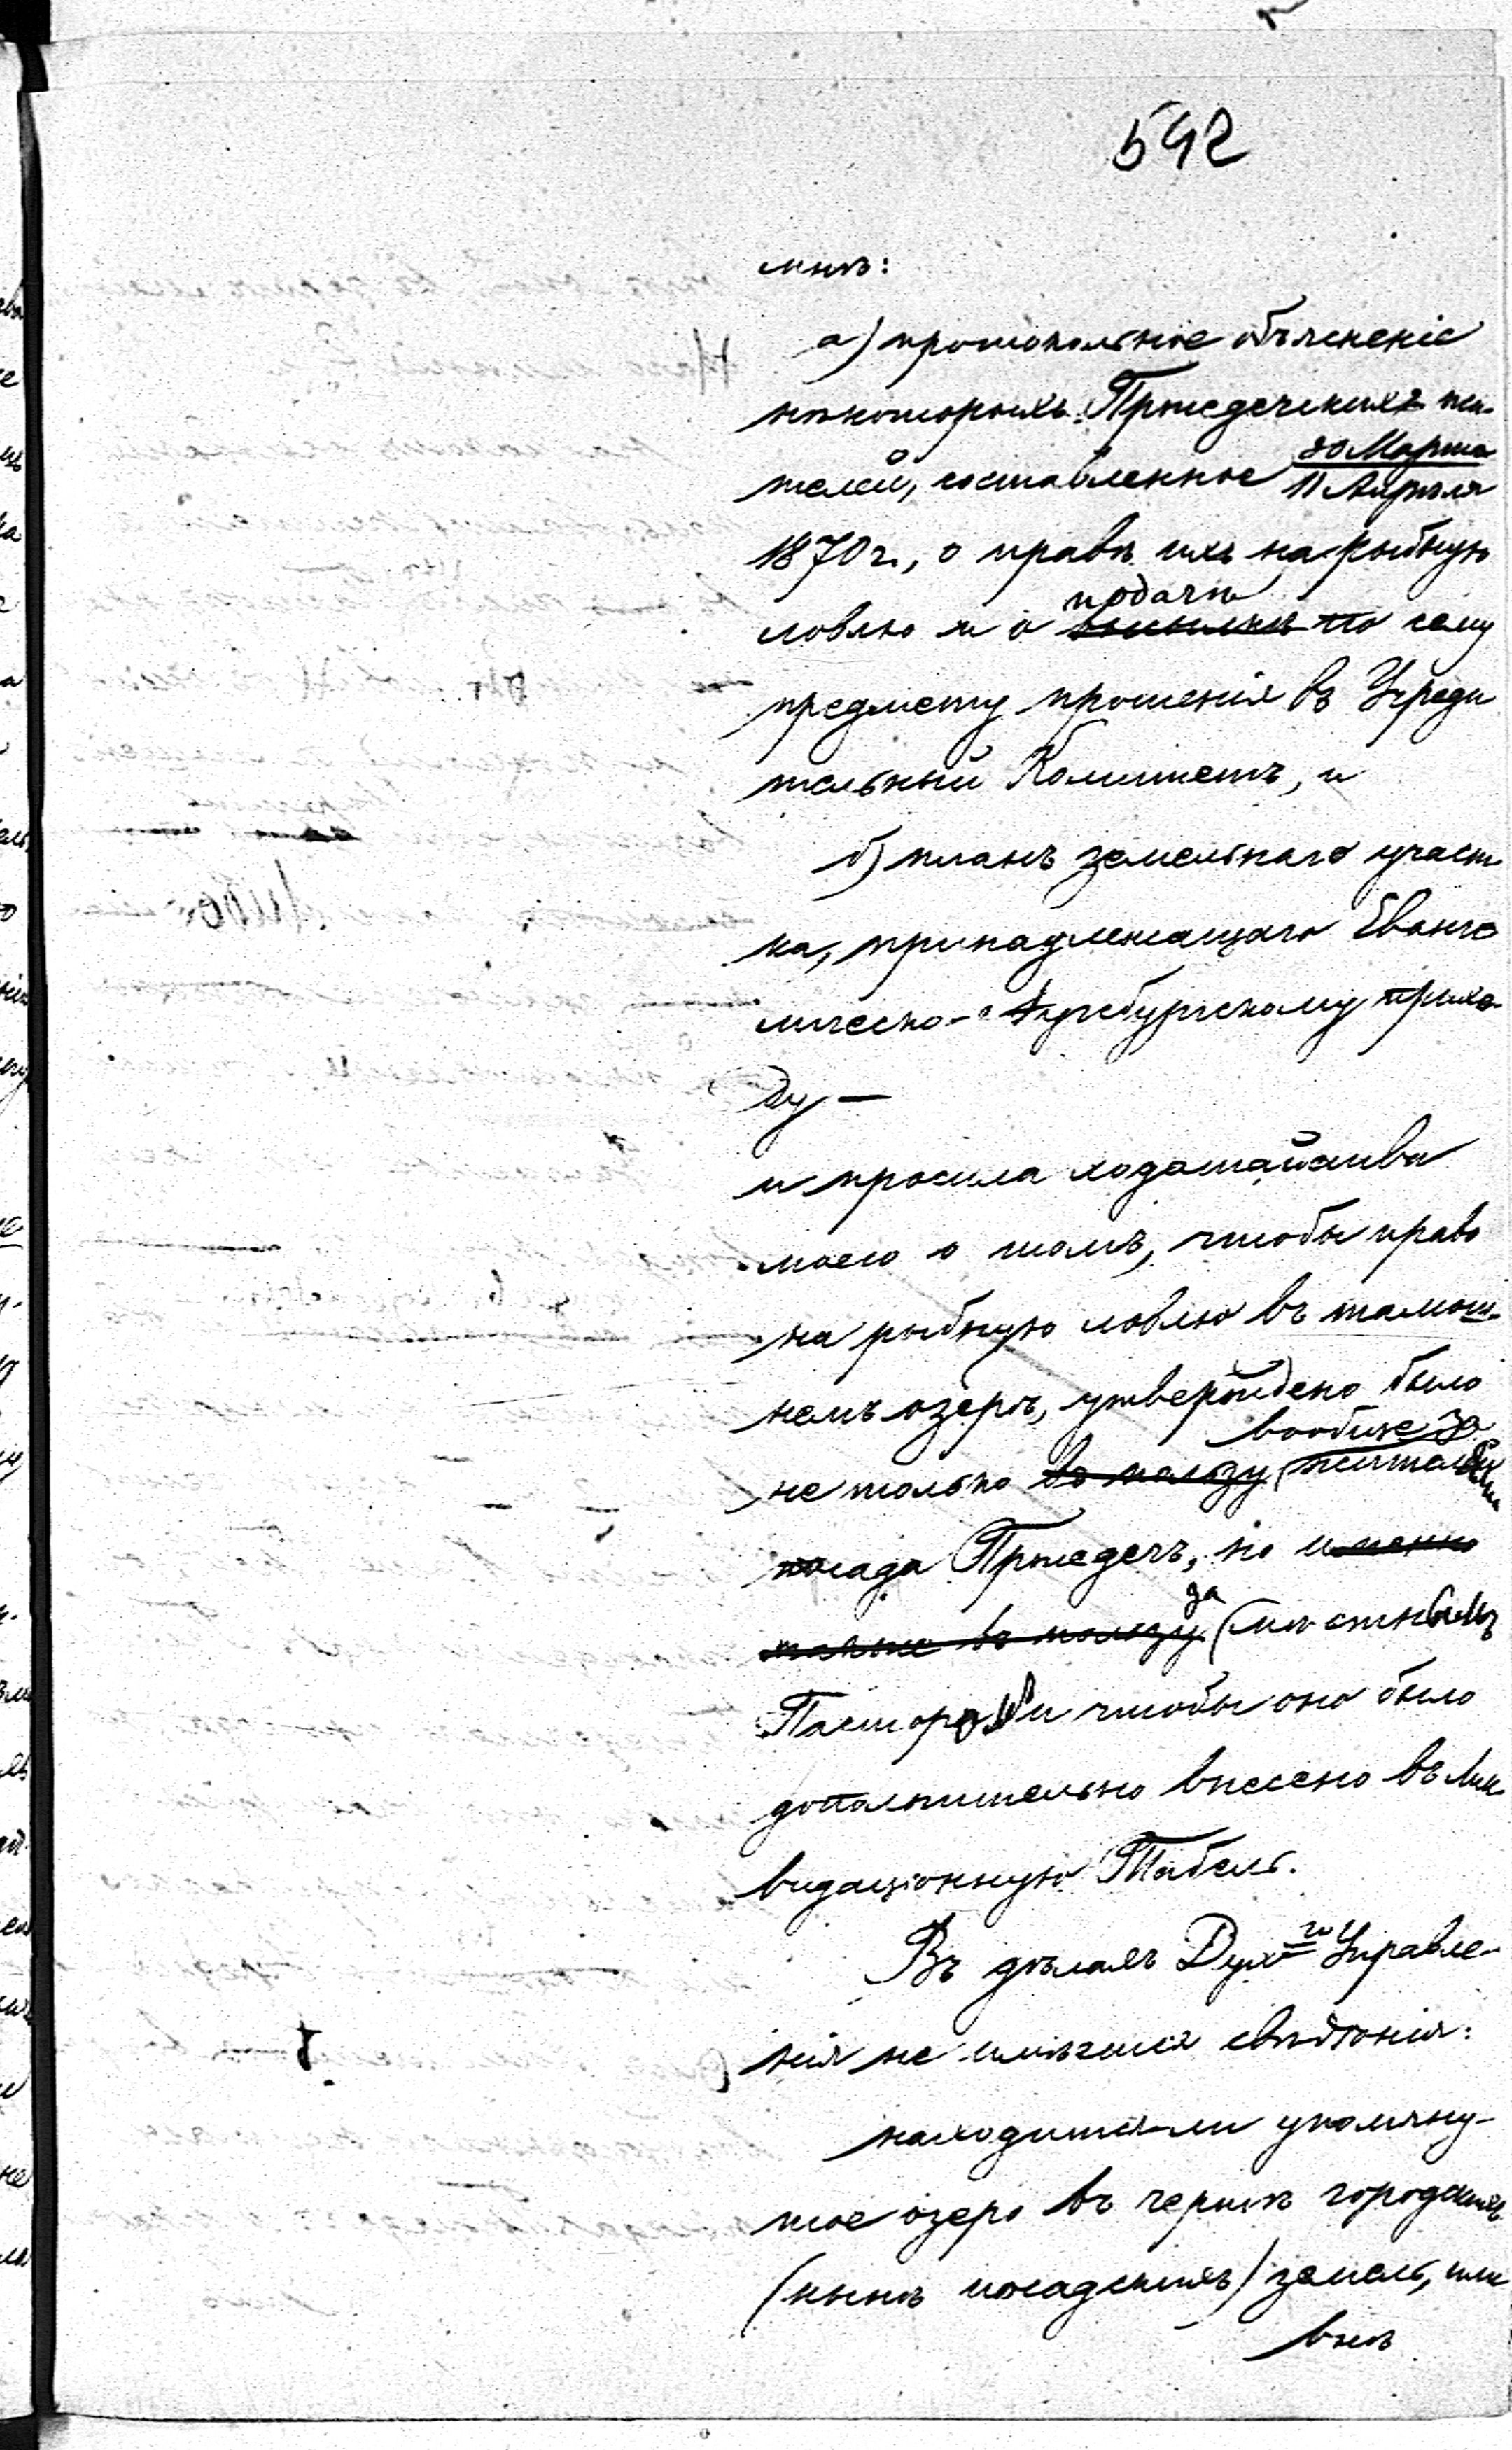 592
мнѣ:
а) протокольное объясненіе
нѣкоторыхъ Пржедечскихъ жи-
телей, составленное 30 Марта
11 Апрѣля
1870 г., о правѣ ихъ на рыбную
подачи
ловлю и о высылкѣ по сему
предмету прошенія въ Учреди
тельный Комитетъ, и
б) планъ земельнаго участ
ка, принадлежащаго Еванге
лическо-Аугсбургскому прихо-
ду —
и просила ходатайства
моего о томъ, чтобы право
на рыбную ловлю въ тамош-
немъ озерѣ, утверждено было
вообще за
не только въ пользу жителями
посада Пржедечъ, но и именно
за
также въ пользу мѣстнымъ
Пасторомъ и чтобы оно было
дополнительно внесено въ Лик
видаціонную Табель.
Въ дѣлахъ Духго Управле-
нія не имѣется свѣдѣнія:
находится-ли упомяну-
тое озеро въ чертѣ городскихъ
(нынѣ посадскихъ) земель, или
внѣ